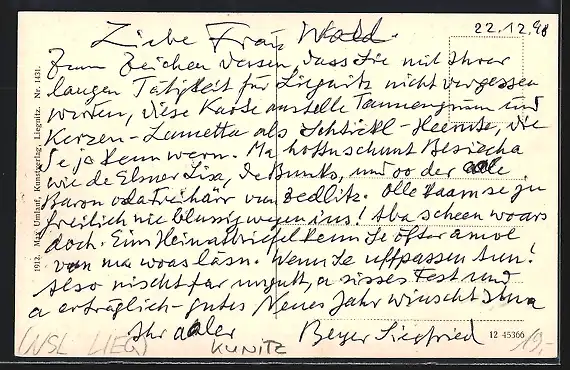 22.12.98
Liebe Frau Wald.
Zum Zeichen dessen, dass Sie mit Ihrer
langen Tätigkeit für Liegnitz nicht vergessen
werden, diese Karte anstelle Tannengrün und
Kerzen-Lametta als Schtickl-Heemte, die
Se ja kenn wern. Ma hoffn schunt Besiecha
wie de Elsner Lisa, de Bunks, und oo der aale
Baron oda Freiharr von Zedlitz. Olle kaam se zu
freilich nie blussig wegen ins! Aba scheen woars
doch. Ein Heimatbriefel kenn Se öfter amol
von ma woas läsn. Wenn Se uffpassen tun!
Also nischt fär ungutt, a sisses Fest und
a erträglich-gutes Neues Jahr wünscht Ihna
Ihr aaler Beyer Siegfried
(NSL LIEG) KUNITZ
12 45366
19,-
1912. Max Umlauf, Kunstverlag, Liegnitz. Nr. 1431.